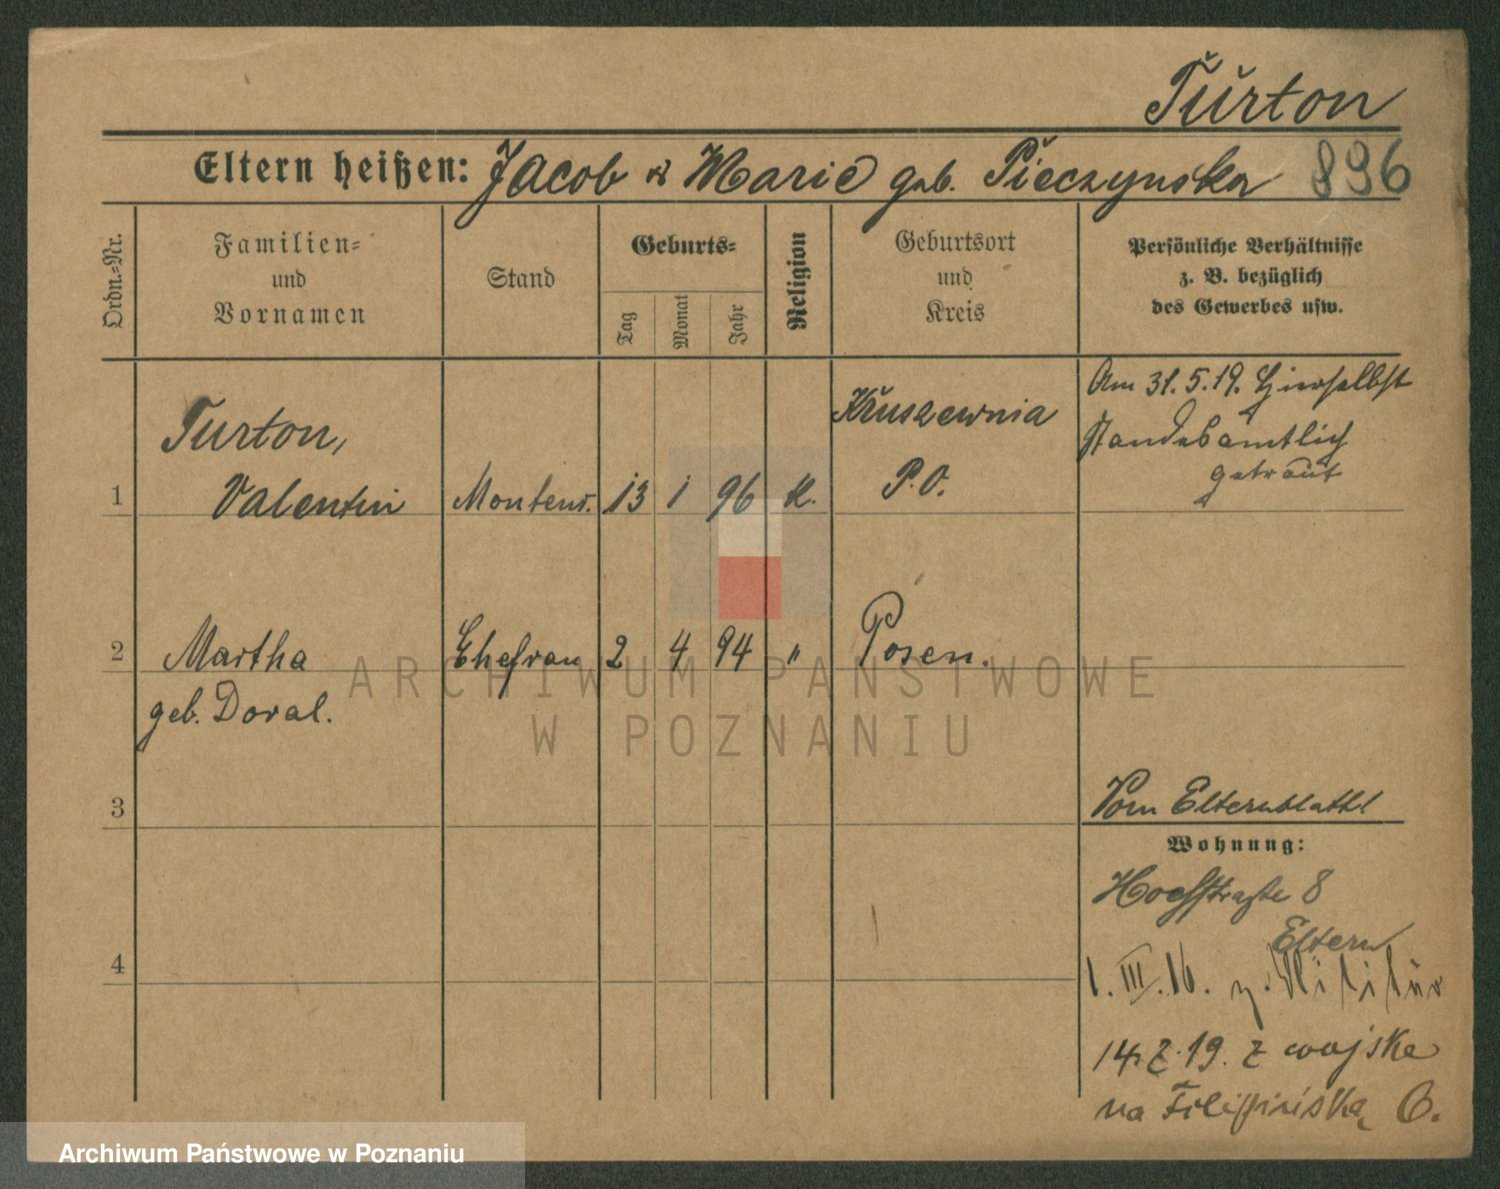 Turton
Eltern heißen: Jacob & Marie geb. Pieczynska 896
Ordn.-Nr.
Familien-
und
Vornamen
Stand
Geburts-
Tag
Monat
Jahr
Religion
Geburtsort
und
Kreis
Persönliche Verhältnisse
z. B. bezüglich
des Gewerbes usw.
1
Turton,
Valentin
Monteur.
13 1 96
K.
Kruszewnia
P.O.
Am 31.5.19. hierselbst
standesamtlich
getraut
2
Martha
geb. Doral.
Ehefrau
2 4 94
"
Posen.
3
Vom Elternblatt!
Wohnung:
4
8
Eltern
1. III. 16. z. Militär
14. 2. 19. z wojska
na 6.
ARCHIWUM PAŃSTWOWE
W POZNANIU
Archiwum Państwowe w Poznaniu